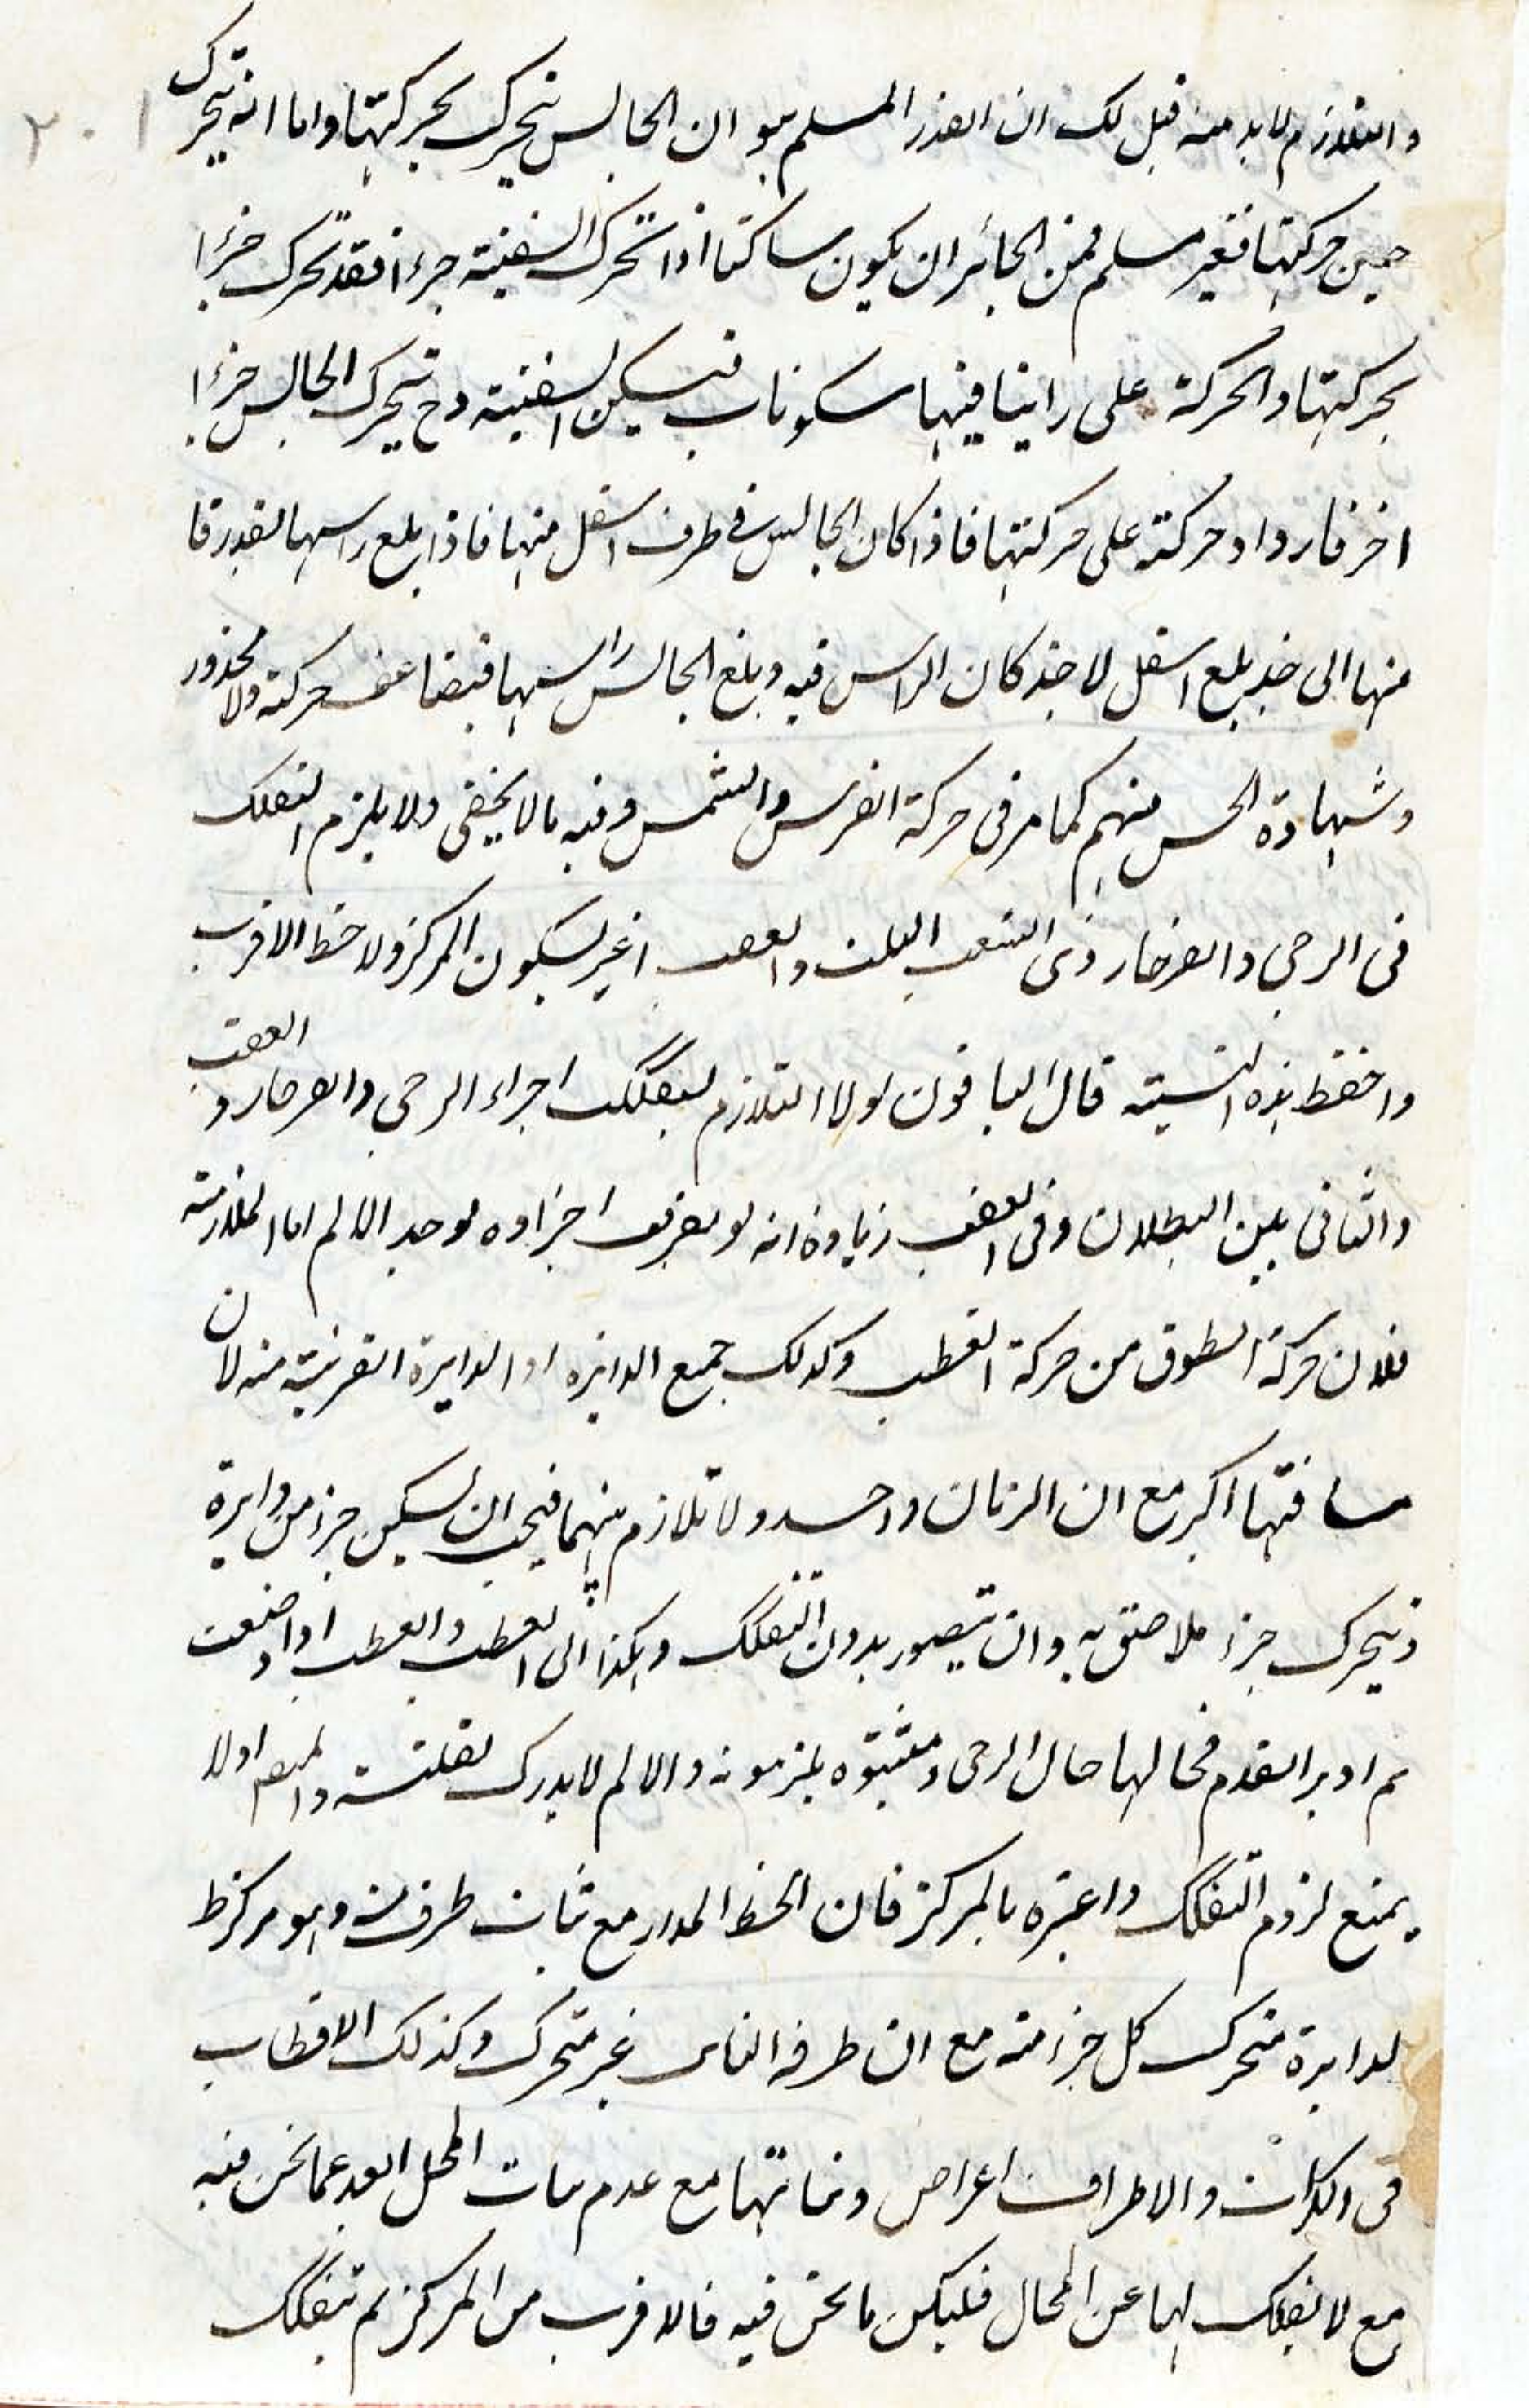 ٢٠١
والتلازم لابد منه قيل لك ان القدر المسلم هو ان الجالس يتحرك بحركتها واما انه يتحرك
حين حركتها فغير مسلم فمن الجائز ان يكون ساكنا اذا تحرك السفينة جزءا فقد تحرك جزءا
بحركتها والحركة على راينا فيها سكونات فيسكن السفينة وح يتحرك الجالس جزءا
اخر فازداد حركته على حركتها فاذا كان الجالس في طرف اسفل منها فاذا بلغ راسها بقدر
منها الى حد بلغ اسفل لا حد كان الراس فيه وبلغ الجالس راسها فيضاعف حركته ولا محذور
وشهادة الحس منهم كما مر في حركة الفرس والشمس وفيه ما لا يخفى ولا يلزم التفكك
في الرحى والفرجار ذى الشعب الثلث والعقب اغير لسكون المركز ولا خط الاقرب
واحفظ هذه النسبة قال النافون لولا التلازم لتفكك اجزاء الرحى والفرجار والعقب
والثانى بين البطلان وفى العقب زيادة انه لو تفرق اجزاؤه لوجد الالم اما الملازمة
فلان حركة الطوق من حركة القطب وكذلك جميع الدائرة او الدايرة القريبة منه لان
مسافتها اكبر مع ان الزمان واحد ولا تلازم بينهما فيجب ان يسكن جزء من دايرة
ويتحرك جزء ملاصق به وان يتصور بدون التفكك وهكذا الى القطب والقطب اذا وضعت
ثم ادير القدم فحالها حال الرحى ومثبتوه يلتزمونه والالم لا يدرك لقلته ولهم اولا
يمنع لزوم التفكك واعتبره بالمركز فان الخط المدار مع ثبات طرف منه وهو مركز ط
لدايرة متحرك كل جزء منه مع ان طرفه الثابت غير متحرك وكذلك الاقطاب
فى الكرات والاطراف اعراض وثباتها مع عدم ثبات المحل ابعد عما نحن فيه
مع لا تفكك لها عن المحال فليكن ما نحن فيه فالاقرب من المركز لم تتفكك